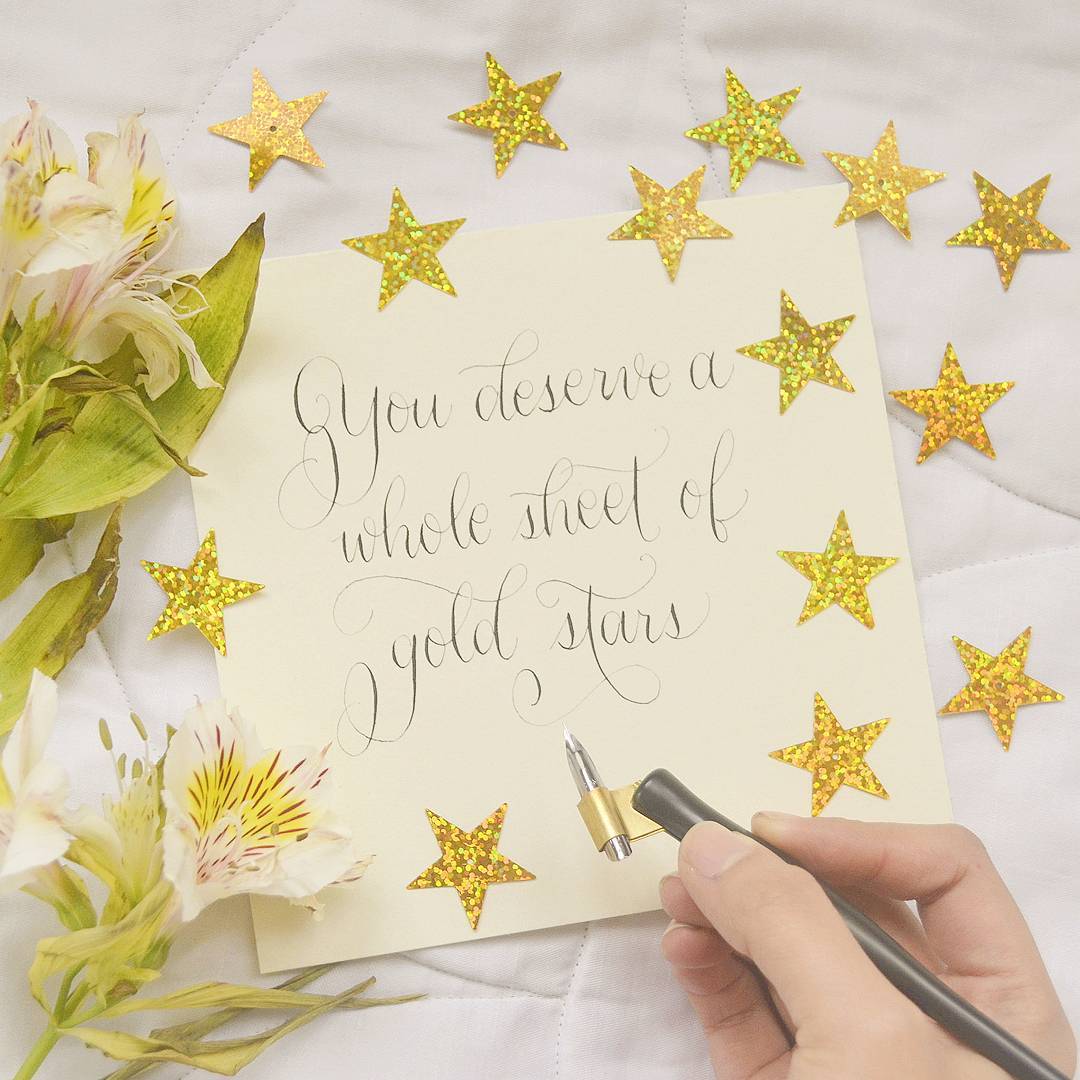 You deserve a
whole sheet of
gold stars